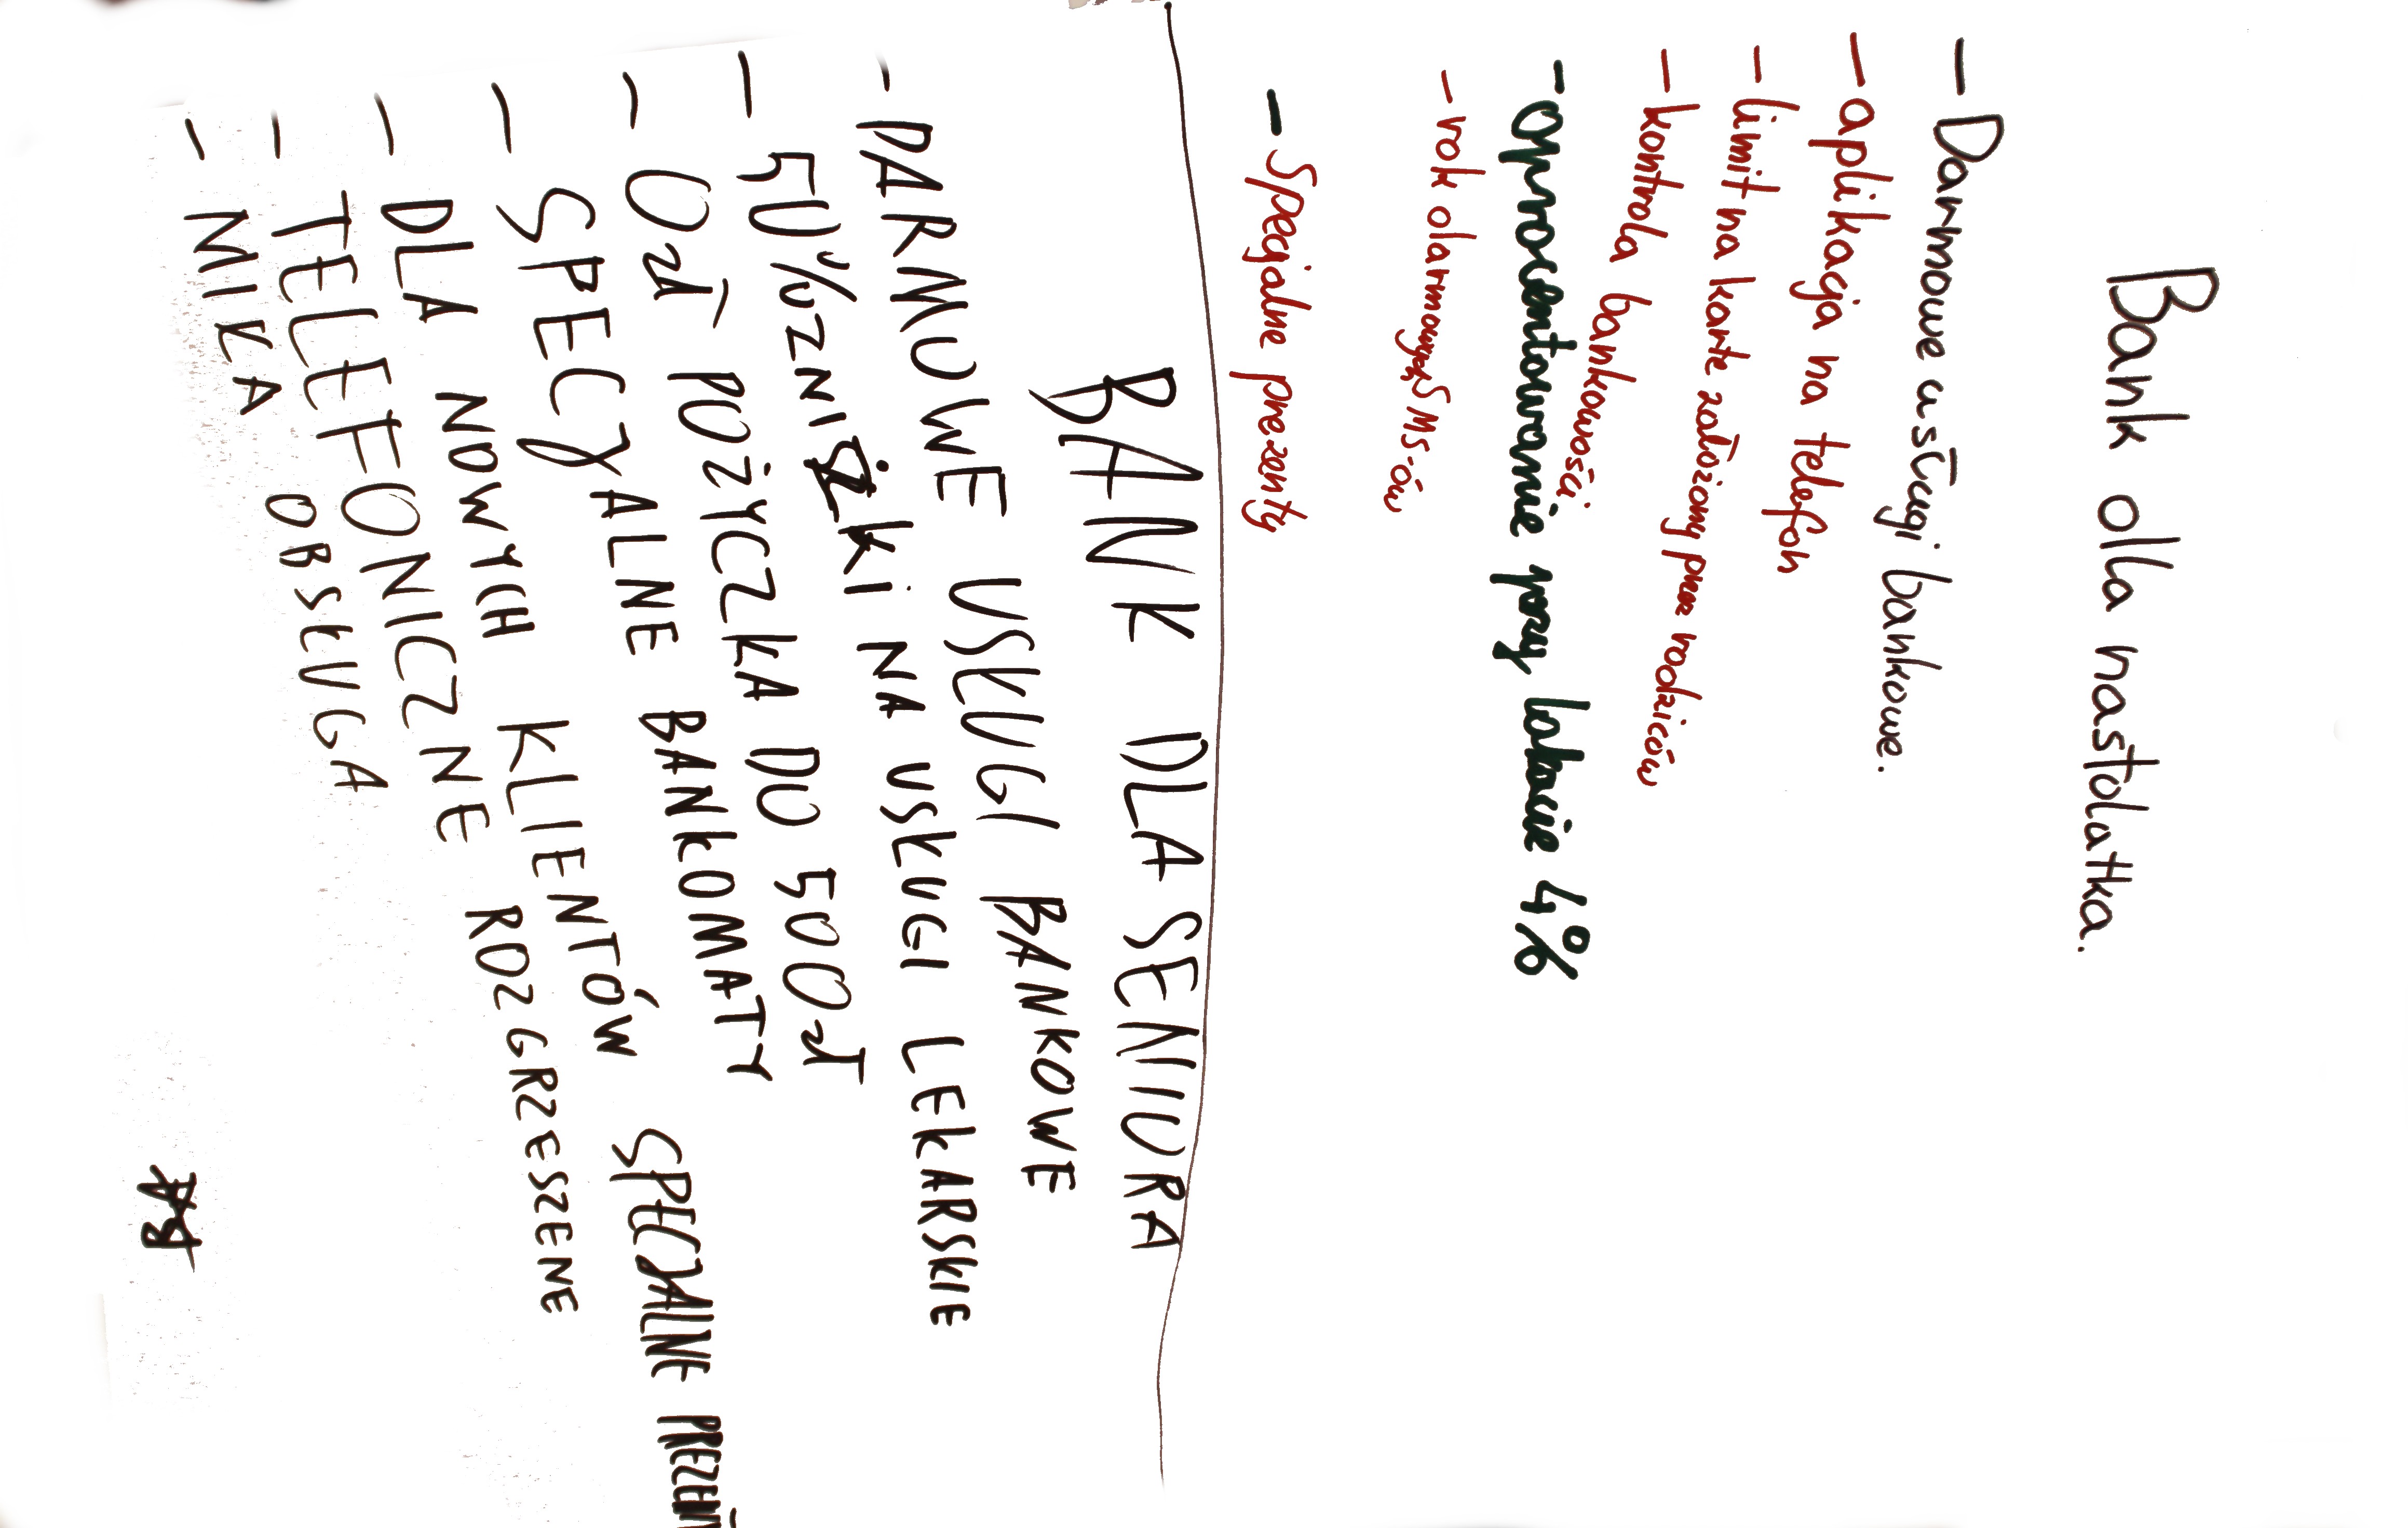 Bank dla nastolatka.
- Darmowe usługi bankowe.
- aplikacja na telefon
- limit na karte założony przez rodziców
- kontrola bankowości
- oprocentowanie przy lokacie 4%
- rok darmowych SMS-ów
- Specjalne prezenty
BANK DLA SENIORA
- DARMOWE USŁUGI BANKOWE
- 50% ZNIŻKI NA USŁUGI LEKARSKIE
- 0zł POŻYCZKA DO 500zł
- SPECJALNE BANKOMATY
- DLA NOWYCH KLIENTÓW SPECJALNE
- TELEFONICZNE ROZGRZESZENE
- MIŁA OBSŁUGA